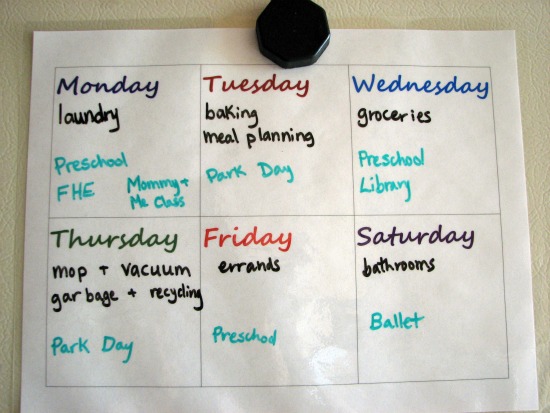 Monday
laundry
Preschool
FHE
Mommy +
Me Class
Tuesday
baking
meal planning
Park Day
Wednesday
groceries
Preschool
Library
Thursday
mop + vacuum
garbage + recycling
Park Day
Friday
errands
Preschool
Saturday
bathrooms
Ballet